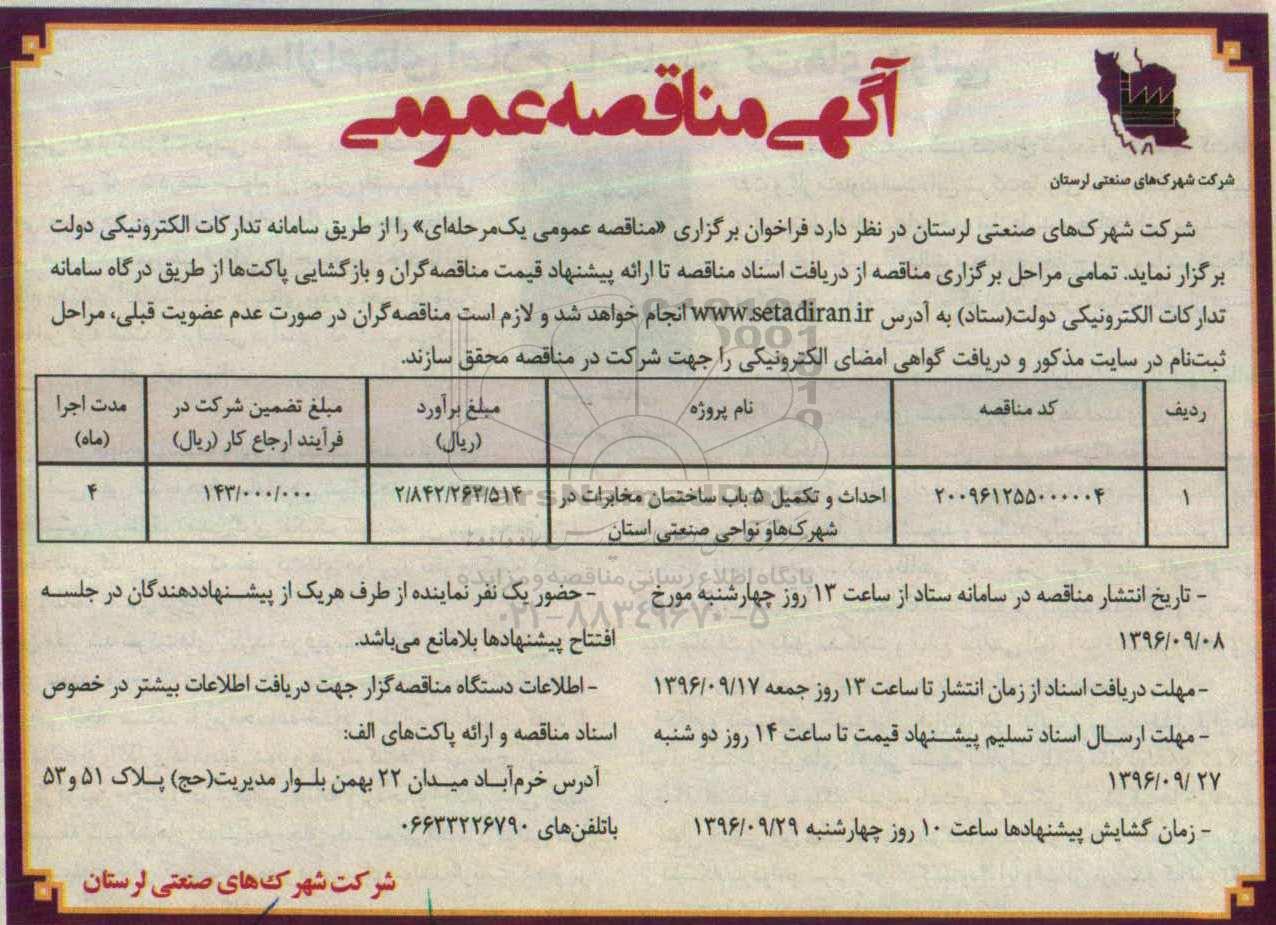 آگهی مناقصه عمومی
شرکت شهرک‌های صنعتی لرستان
شرکت شهرک‌های صنعتی لرستان در نظر دارد فراخوان برگزاری «مناقصه عمومی یک‌مرحله‌ای» را از طریق سامانه تدارکات الکترونیکی دولت
برگزار نماید. تمامی مراحل برگزاری مناقصه از دریافت اسناد مناقصه تا ارائه پیشنهاد قیمت مناقصه‌گران و بازگشایی پاکت‌ها از طریق درگاه سامانه
تدارکات الکترونیکی دولت(ستاد) به آدرس www.setadiran.ir انجام خواهد شد و لازم است مناقصه‌گران در صورت عدم عضویت قبلی، مراحل
ثبت‌نام در سایت مذکور و دریافت گواهی امضای الکترونیکی را جهت شرکت در مناقصه محقق سازند.
ردیف کد مناقصه نام پروژه مبلغ برآورد مبلغ تضمین شرکت در مدت اجرا
(ریال) فرآیند ارجاع کار (ریال) (ماه)
۱ ۲۰۰۹۶۱۲۵۵۰۰۰۰۰۴ احداث و تکمیل ۵ باب ساختمان مخابرات در ۲/۸۴۲/۲۶۲/۵۱۴ ۱۴۳/۰۰۰/۰۰۰ ۴
شهرک‌هاو نواحی صنعتی استان
ParsNamadData
پایگاه اطلاع رسانی مناقصه و مزایده
۰۲۱-۸۸۳۴۹۶۷۰-۵
- تاریخ انتشار مناقصه در سامانه ستاد از ساعت ۱۳ روز چهارشنبه مورخ
۱۳۹۶/۰۹/۰۸
- مهلت دریافت اسناد از زمان انتشار تا ساعت ۱۳ روز جمعه ۱۳۹۶/۰۹/۱۷
- مهلت ارسال اسناد تسلیم پیشنهاد قیمت تا ساعت ۱۴ روز دو شنبه
۱۳۹۶/۰۹/ ۲۷
- زمان گشایش پیشنهادها ساعت ۱۰ روز چهارشنبه ۱۳۹۶/۰۹/۲۹
- حضور یک نفر نماینده از طرف هریک از پیشنهاددهندگان در جلسه
افتتاح پیشنهادها بلامانع می‌باشد.
- اطلاعات دستگاه مناقصه‌گزار جهت دریافت اطلاعات بیشتر در خصوص
اسناد مناقصه و ارائه پاکت‌های الف:
آدرس خرم‌آباد میدان ۲۲ بهمن بلوار مدیریت(حج) پلاک ۵۱ و۵۳
باتلفن‌های ۰۶۶۳۳۲۲۶۷۹۰
شرکت شهرک‌های صنعتی لرستان